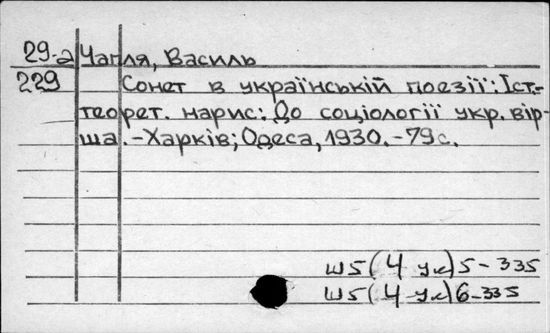 29-а Чапля, Василь
229 Сонет в українській поезії: Іст.-
теорет. нарис: До соціології укр. вір-
ша. - Харків; Одеса, 1930. - 79 с.
Ш5(4 Ук)5-335
Ш5(4 Ук)6-335